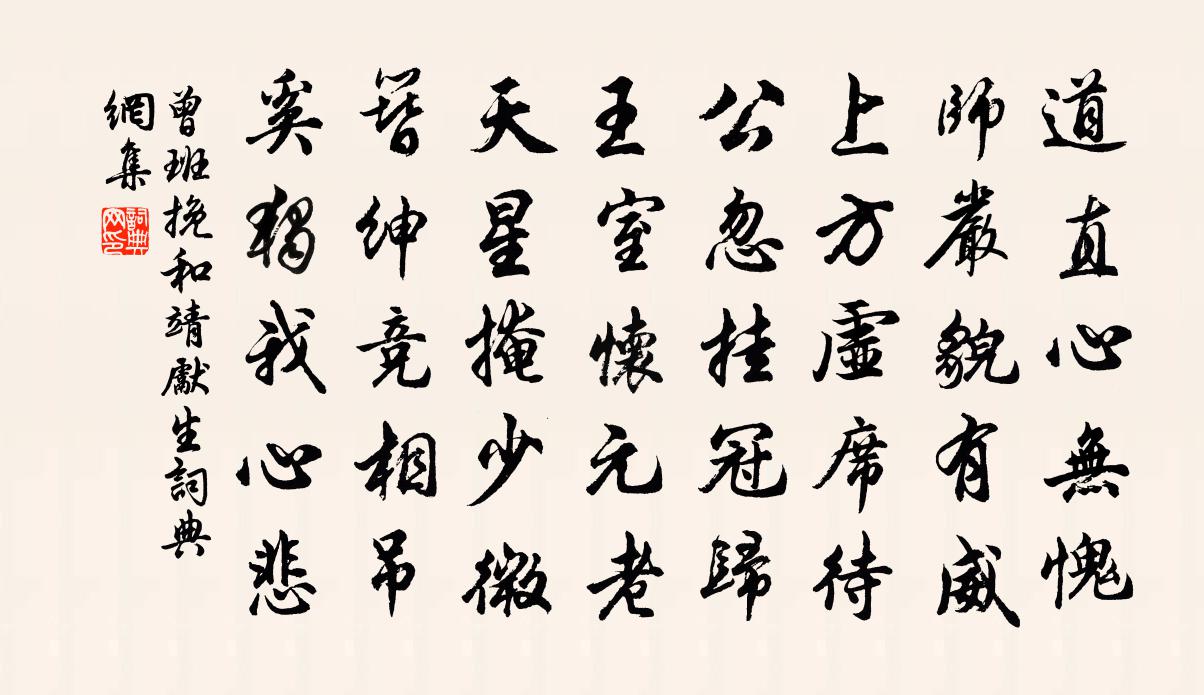 道直心無愧
師嚴貌有威
上方虛席待
公忽挂冠歸
王室懷元老
天星掩少微
簪紳竞相吊
奚獨我心悲
曾班挽和靖處生詞典
網集
詞典網印